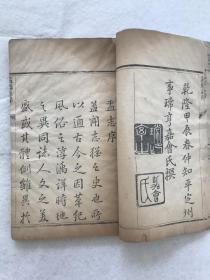 乾隆甲辰春仲知平定州
事瑭亨嘉會氏撰
嘉會
氏
盂志序
蓋聞志猶之史也所
以通古今之因革紀
風俗之淳漓詳時地
之異同誌人文之
盛或其體例雖異於